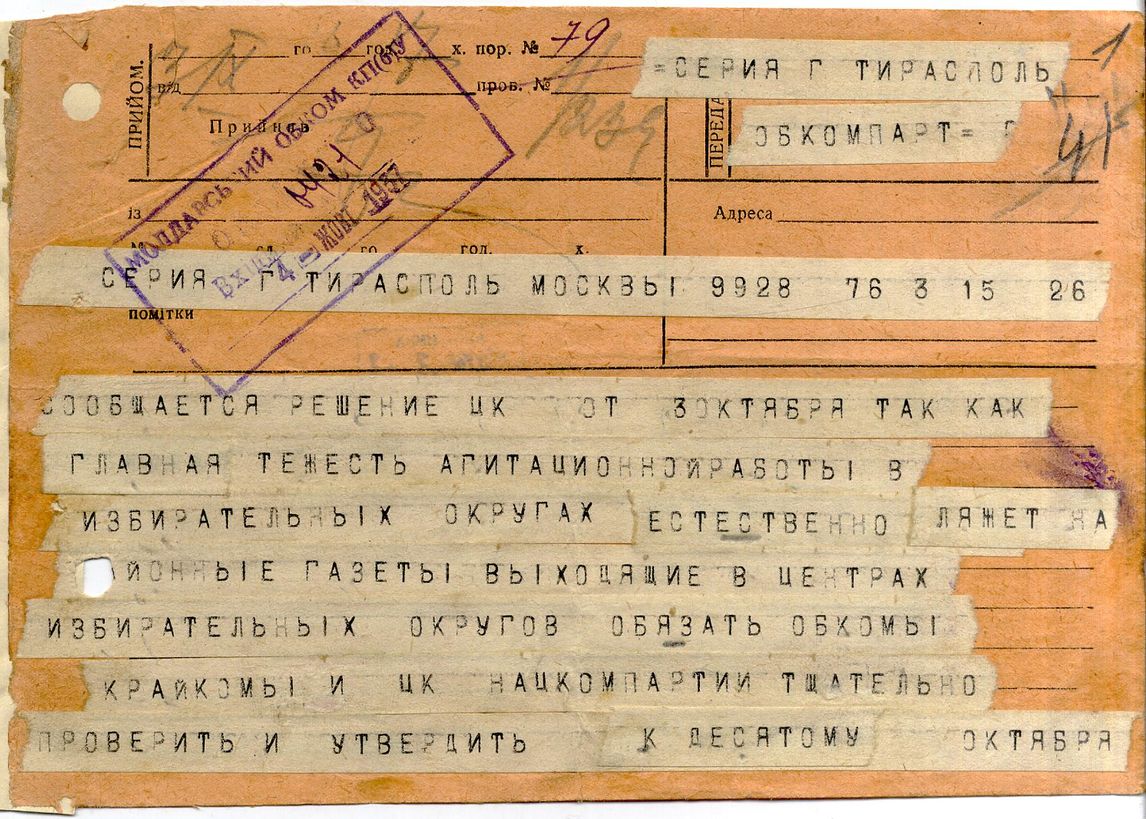 го год х. пор. № 79
=СЕРИЯ Г ТИРАСПОЛЬ
ПРИЙОМ.
від проб. №
Прийняв
ПЕРЕДА
ОБКОМПАРТ=
МОЛДАВСЬКИЙ ОБКОМ КП(б)У
4 - ЖОВТ 1937
із
Адреса
го год. х.
СЕРИЯ Г ТИРАСПОЛЬ МОСКВЫ 9928 76 3 15 26
помітки
СООБЩАЕТСЯ РЕШЕНИЕ ЦК ОТ 3ОКТЯБРЯ ТАК КАК
ГЛАВНАЯ ТЕЖЕСТЬ АГИТАЦИОННОЙРАБОТЫ В
ИЗБИРАТЕЛЬНЫХ ОКРУГАХ ЕСТЕСТВЕННО ЛЯЖЕТ НА
АЙОННЫЕ ГАЗЕТЫ ВЫХОДЯЩИЕ В ЦЕНТРАХ
ИЗБИРАТЕЛЬНЫХ ОКРУГОВ ОБЯЗАТЬ ОБКОМЫ
КРАЙКОМЫ И ЦК НАЦКОМПАРТИИ ТЩАТЕЛЬНО
ПРОВЕРИТЬ И УТВЕРДИТЬ К ДЕСЯТОМУ ОКТЯБРЯ